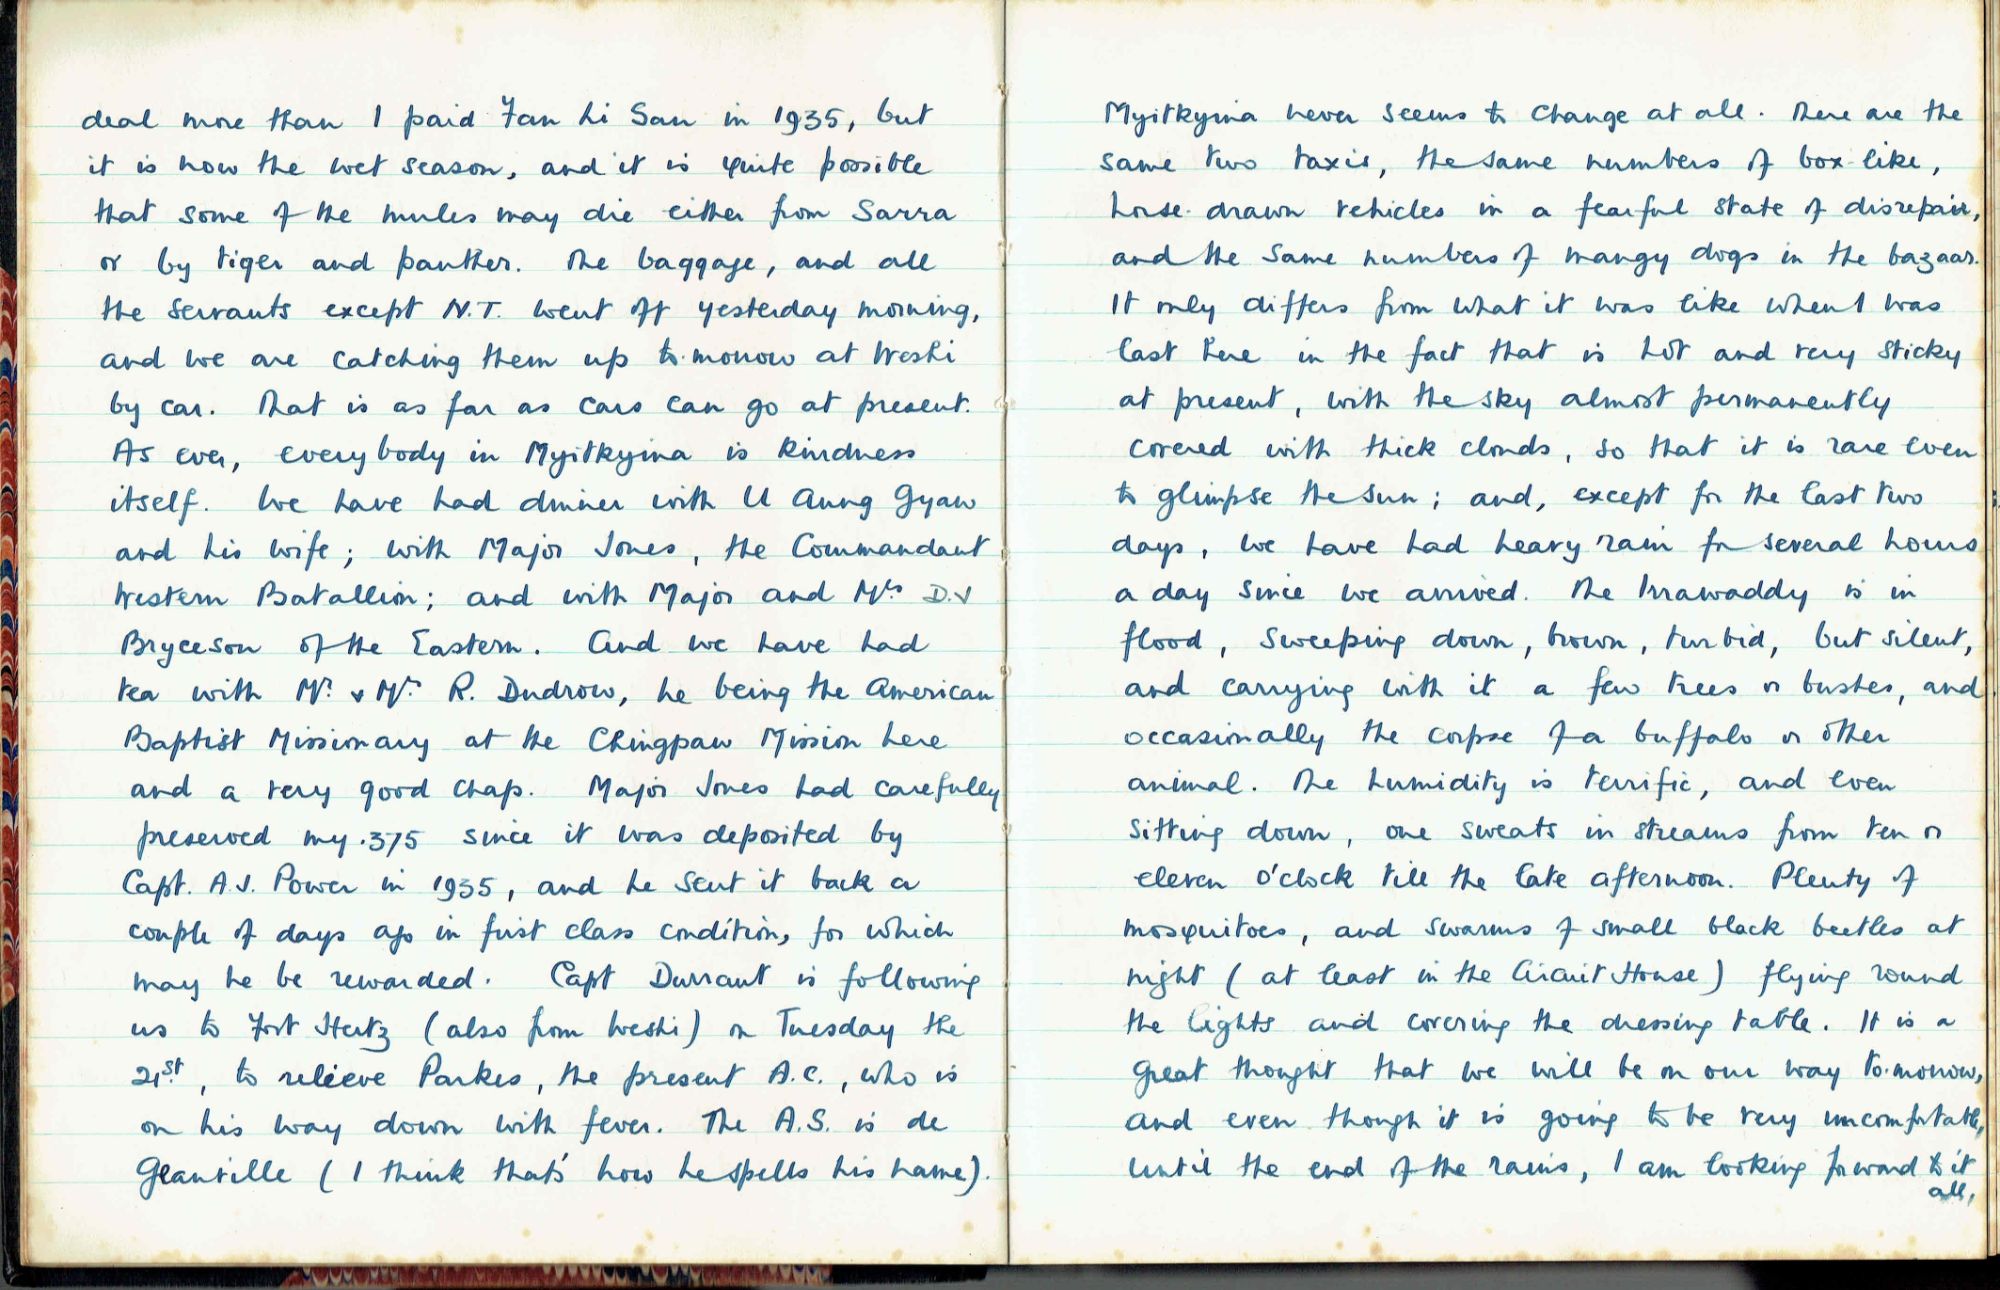 deal more than I paid Fan Li San in 1935, but
it is now the wet season, and it is quite possible
that some of the mules may die either from Sarra
or by tiger and panther. The baggage, and all
the servants except N.T. went off yesterday morning,
and we are catching them up to-morrow at Weshi
by car. That is as far as cars can go at present.
As ever, everybody in Myitkyina is kindness
itself. We have had dinner with U Aung Gyaw
and his wife; with Major Jones, the Commandant
Western Batallion; and with Major and Mrs
Bryceson of the Eastern. And we have had
tea with Mr. & Mrs. R. Dudrow, he being the American
Baptist Missionary at the Chingpaw Mission here
and a very good chap. Major Jones had carefully
preserved my .375 since it was deposited by
Capt. A.J. Power in 1935, and he sent it back a
couple of days ago in first class condition, for which
may he be rewarded. Capt Durrant is following
us to Fort Hertz (also from Weshi) on Tuesday the
21st, to relieve Parkes, the present A.C., who is
on his way down with fever. The A.S. is de
Glanville (I think that's how he spells his name).
Myitkyina never seems to change at all. There are the
same two taxis, the same numbers of box-like,
horse-drawn vehicles in a fearful state of disrepair,
and the same numbers of mangy dogs in the bazaar.
It only differs from what it was like when I was
last here in the fact that is hot and very sticky
at present, with the sky almost permanently
covered with thick clouds, so that it is rare even
to glimpse the sun; and, except for the last two
days, we have had heavy rain for several hours
a day since we arrived. The Irrawaddy is in
flood, sweeping down, brown, turbid, but silent,
and carrying with it a few trees or bushes, and
occasionally the corpse of a buffalo or other
animal. The humidity is terrific, and even
sitting down, one sweats in streams from ten or
eleven o'clock till the late afternoon. Plenty of
mosquitoes, and swarms of small black beetles at
night (at least in the Circuit House) flying round
the lights and covering the dressing table. It is a
great thought that we will be on our way to-morrow,
and even though it is going to be very uncomfortable,
until the end of the rains, I am looking forward to it
all,